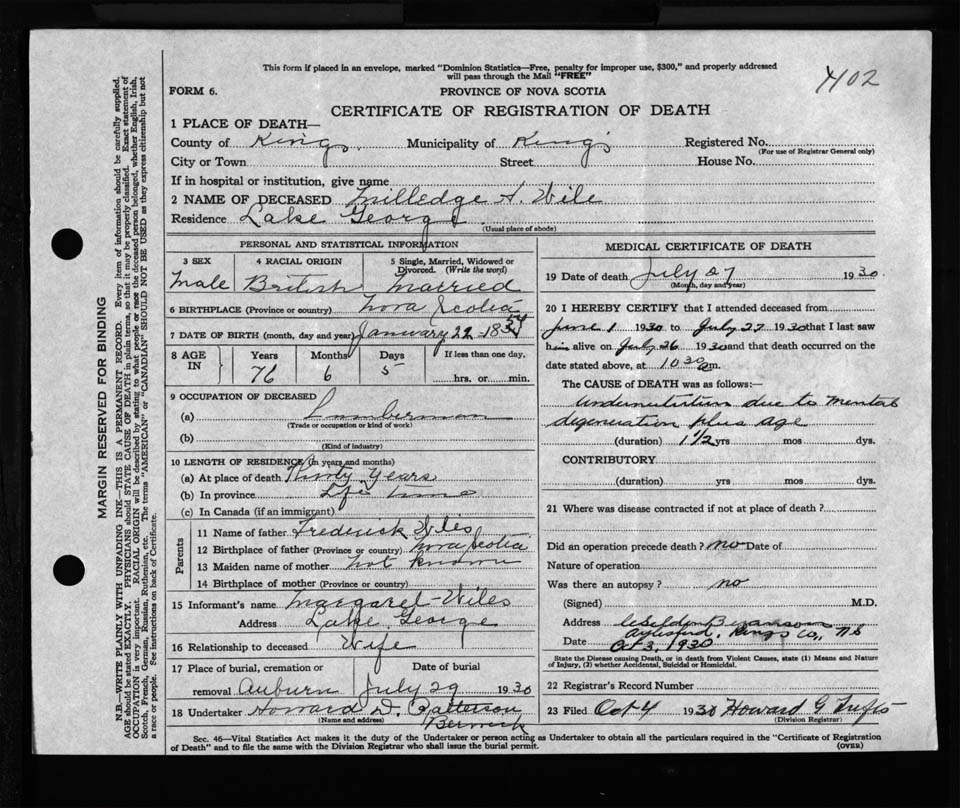 This form if placed in an envelope, marked "Dominion Statistics—Free, penalty for improper use, $300," and properly addressed
will pass through the Mail "FREE"
4402
FORM 6.
PROVINCE OF NOVA SCOTIA
CERTIFICATE OF REGISTRATION OF DEATH
1 PLACE OF DEATH—
County of Kings Municipality of King's Registered No.
(For use of Registrar General only)
City or Town Street House No.
If in hospital or institution, give name
2 NAME OF DECEASED Milledge A. Wile
Residence Lake George
(Usual place of abode)
PERSONAL AND STATISTICAL INFORMATION
3 SEX 4 RACIAL ORIGIN 5 Single, Married, Widowed or
Divorced. (Write the word)
Male British Married
6 BIRTHPLACE (Province or country) Nova Scotia
7 DATE OF BIRTH (month, day and year) January 22 - 1854
8 AGE IN Years Months Days If less than one day,
76 6 5 hrs. or min.
9 OCCUPATION OF DECEASED
(a) Lumberman
(Trade or occupation or kind of work)
(b)
(Kind of industry)
10 LENGTH OF RESIDENCE (in years and months)
(a) At place of death Thirty Years
(b) In province Life time
(c) In Canada (if an immigrant)
Parents
11 Name of father Frederick Wiles
12 Birthplace of father (Province or country) Nova Scotia
13 Maiden name of mother not known
14 Birthplace of mother (Province or country)
15 Informant's name Margaret Wiles
Address Lake George
16 Relationship to deceased Wife
17 Place of burial, cremation or Date of burial
removal Auburn July 29 1930
18 Undertaker Howard D. Patterson
(Name and address) Berwick
MEDICAL CERTIFICATE OF DEATH
19 Date of death July 27 1930
(Month, day and year)
20 I HEREBY CERTIFY that I attended deceased from
June 1 1930 to July 27 1930 that I last saw
him alive on July 26 1930 and that death occurred on the
date stated above, at 10 30 am.
The CAUSE of DEATH was as follows:—
Undernutrition due to mental
degeneration plus age
(duration) 1 1/2 yrs mos dys.
CONTRIBUTORY
(duration) yrs mos dys.
21 Where was disease contracted if not at place of death?
Did an operation precede death? no Date of
Nature of operation
Was there an autopsy? no
(Signed) M.D.
Address
Aylesford, Kings Co., N.S.
Date Oct 3, 1930
State the Disease causing Death, or in death from Violent Causes, state (1) Means and Nature
of Injury, (2) whether Accidental, Suicidal or Homicidal.
22 Registrar's Record Number
23 Filed Oct 4 1930 Howard G
(Division Registrar)
Sec. 46—Vital Statistics Act makes it the duty of the Undertaker or person acting as Undertaker to obtain all the particulars required in the "Certificate of Registration
of Death" and to file the same with the Division Registrar who shall issue the burial permit.
(OVER)
MARGIN RESERVED FOR BINDING
N.B.—WRITE PLAINLY WITH UNFADING INK—THIS IS A PERMANENT RECORD. Every item of information should be carefully supplied.
AGE should be stated EXACTLY. PHYSICIANS should STATE CAUSE OF DEATH in plain terms, so that it may be properly classified. Exact statement of
OCCUPATION is very important. RACIAL ORIGIN will be described by stating to what people or race the deceased person belonged, whether English, Irish,
Scotch, French, German, Russian, Ruthenian, etc. The terms "AMERICAN" or "CANADIAN" SHOULD NOT BE USED as they express citizenship but not
a race or people. See instructions on back of Certificate.